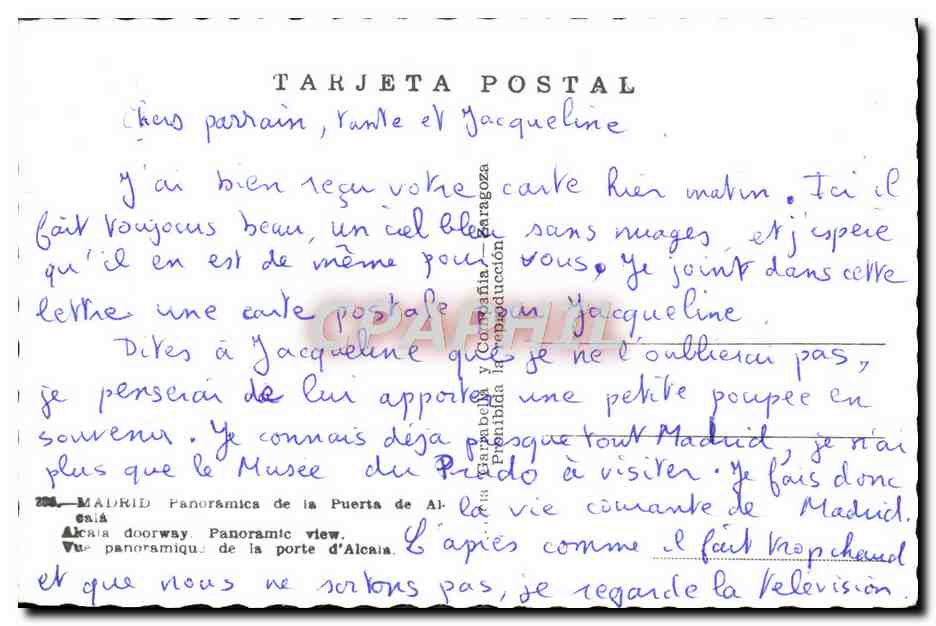 TARJETA POSTAL
Chers parrain, tante et Jacqueline.
J'ai bien reçu votre carte hier matin. Ici il
fait toujours beau, un ciel bleu sans nuages, et j'espère
qu'il en est de même pour vous. Je joint dans cette
lettre une carte postale pour Jacqueline.
Dites à Jacqueline que je ne l'oublierai pas,
je penserai de lui apporter une petite poupée en
souvenir. Je connais déjà presque tout Madrid, je n'ai
plus que le Musée du Prado à visiter. Je fais donc
la vie courante de Madrid.
L'après comme il fait trop chaud
et que nous ne sortons pas, je regarde la télévision.
MADRID Panorámica de la Puerta de Al-
calá
Alcala doorway. Panoramic view.
Vue panoramique de la porte d'Alcala.
Garrabella y Compañia.—Zaragoza
Prohibida la reproducción
CPAPHIL